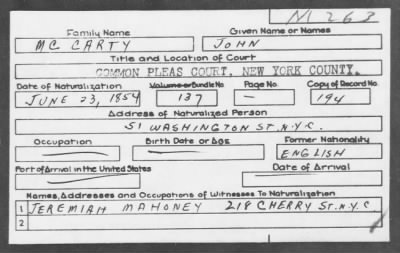 M 263
Family Name Given Name or Names
MC CARTY JOHN
Title and Location of Court
COMMON PLEAS COURT, NEW YORK COUNTY.
Date of Naturalization Volume or Bundle No Page No. Copy of Record No.
JUNE 23, 1854 137 — 194
Address of Naturalized Person
51 WASHINGTON ST. N.Y.C.
Occupation Birth Date or Age Former Nationality
ENGLISH
Port of Arrival in the United States Date of Arrival
Names, Addresses and Occupations of Witnesses To Naturalization
1 JEREMIAH MAHONEY 218 CHERRY ST. N.Y.C
2